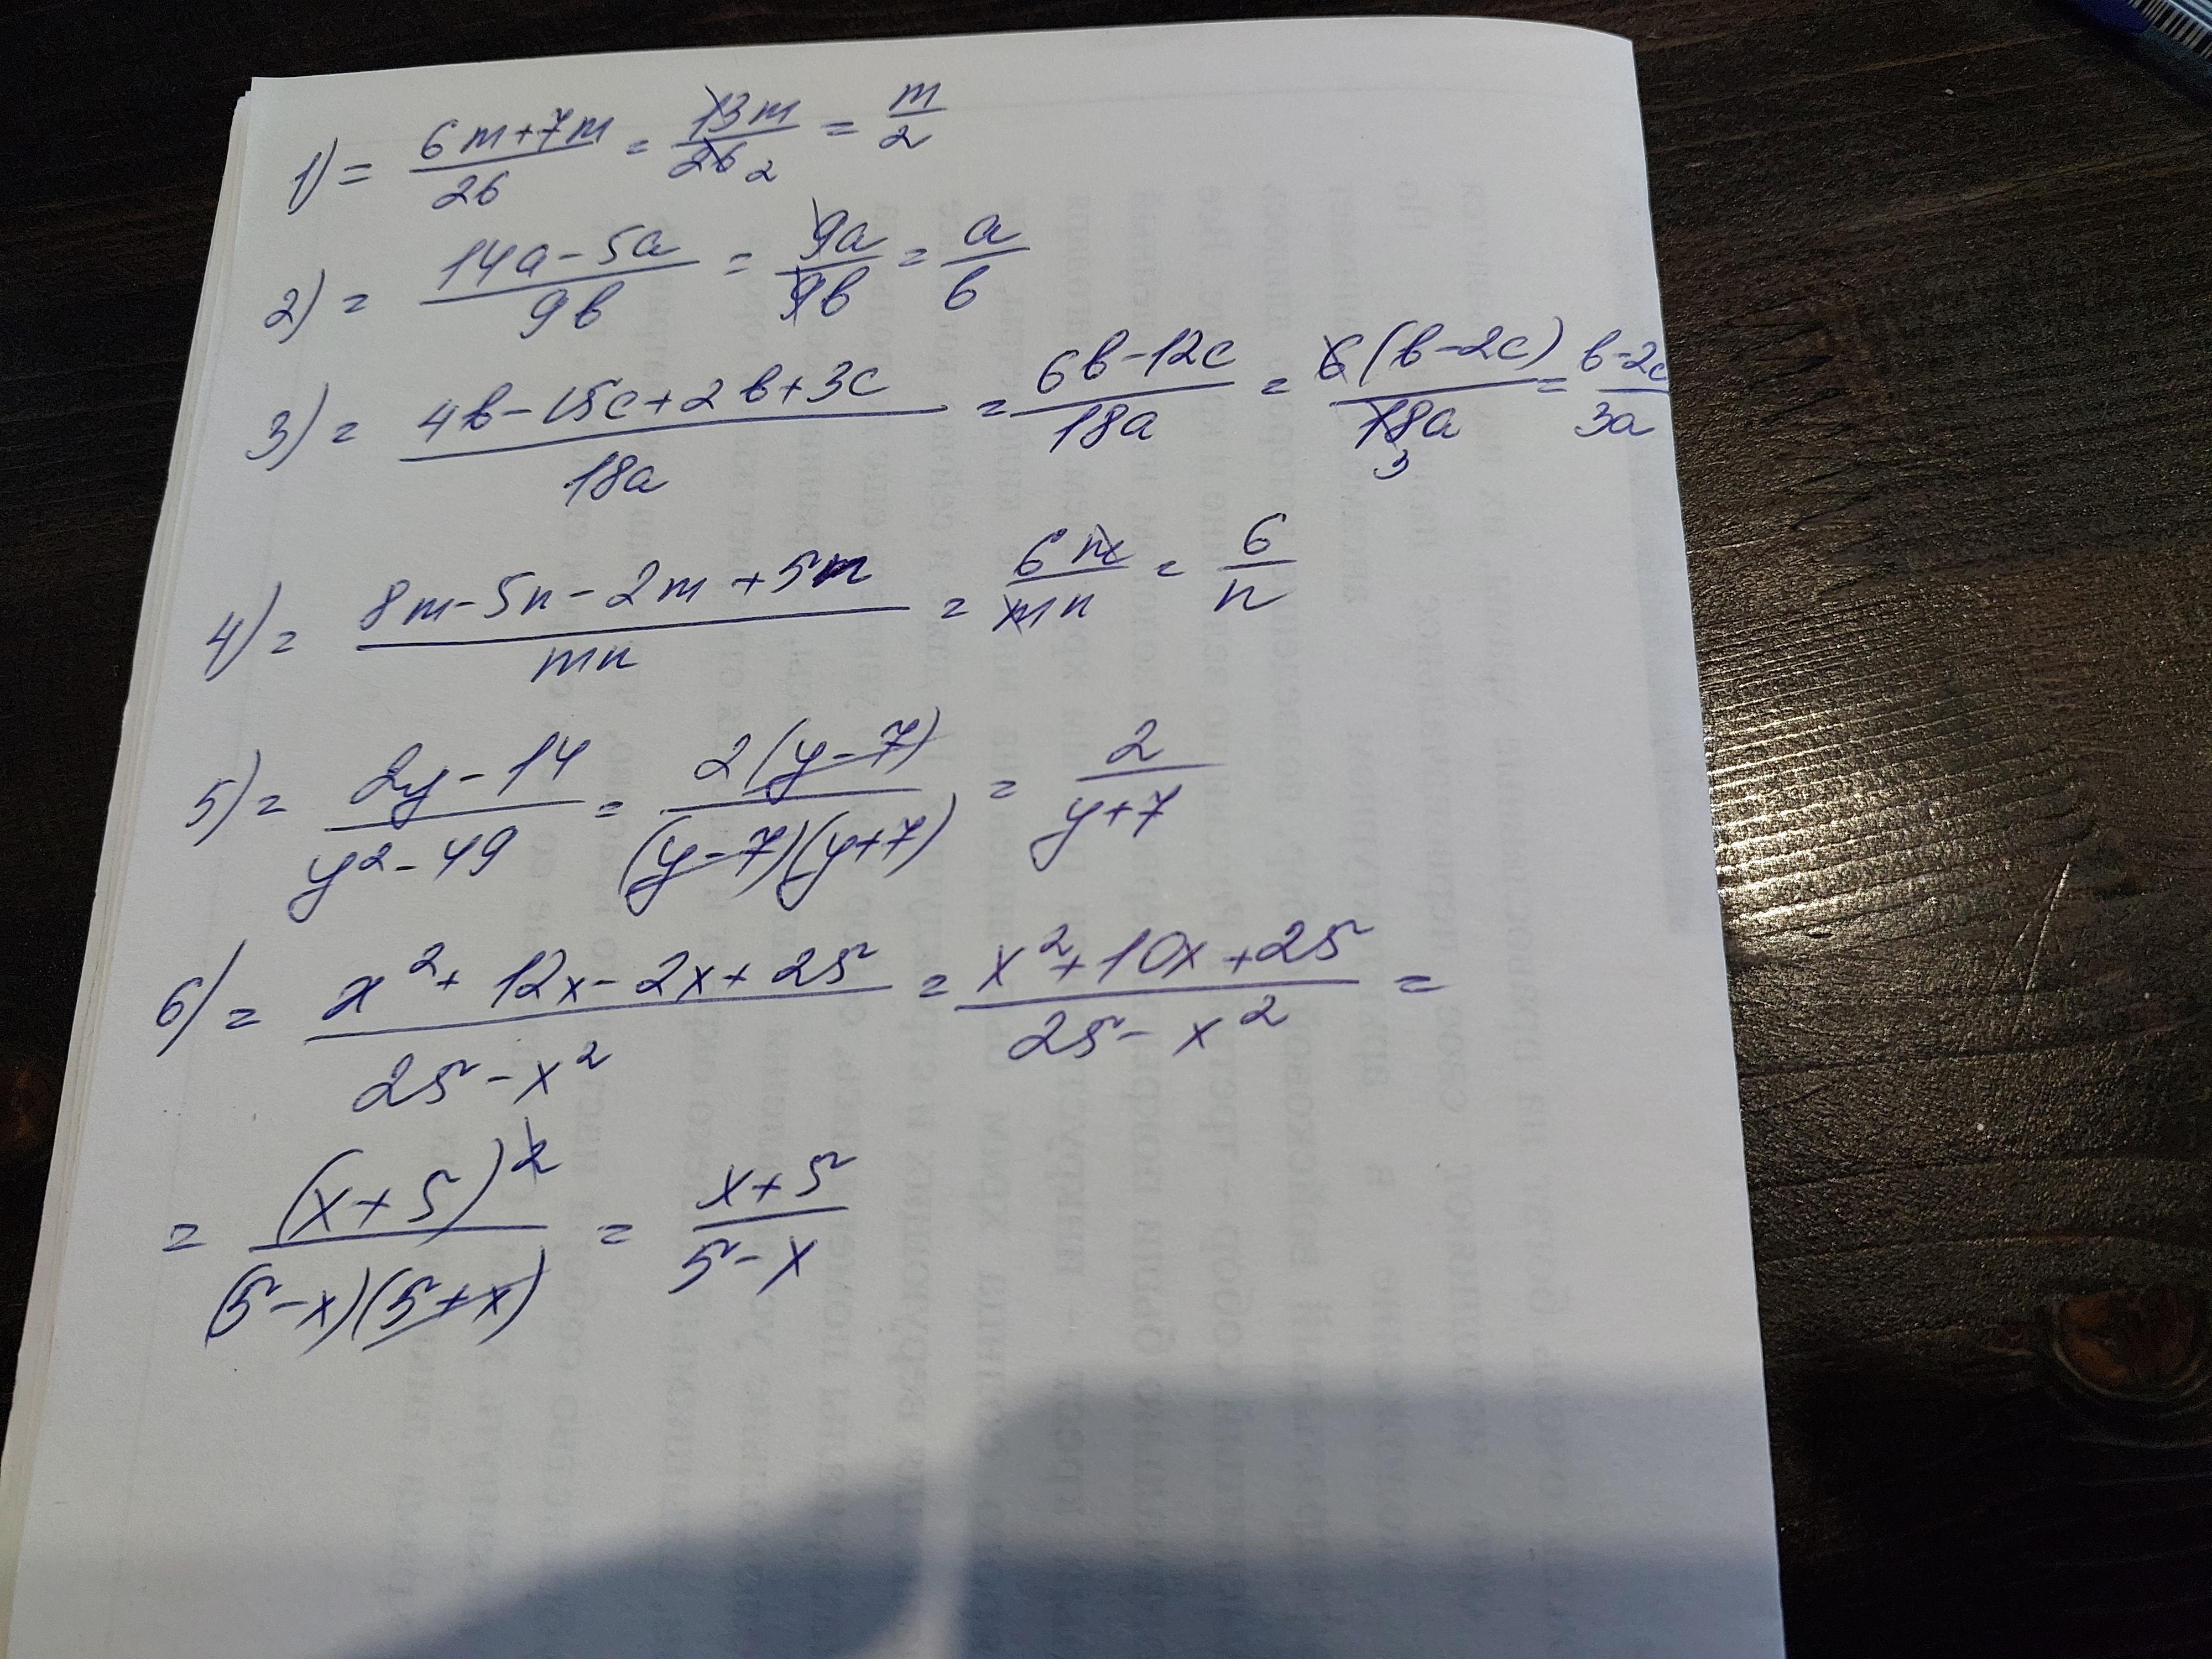 1) = (6m+7m)/26 = 13m/26 2 = m/2
2) = (14a-5a)/9b = 9a/9b = a/b
3) = (4b-15c+2b+3c)/18a = (6b-12c)/18a = 6(b-2c)/18a 3 = (b-2c)/3a
4) = (8m-5n-2m+5n)/mn = 6m/mn = 6/n
5) = (2y-14)/(y²-49) = 2(y-7)/(y-7)(y+7) = 2/(y+7)
6) = (x²+12x-2x+25)/(25-x²) = (x²+10x+25)/(25-x²) =
= (x+5)²/(5-x)(5+x) = (x+5)/(5-x)